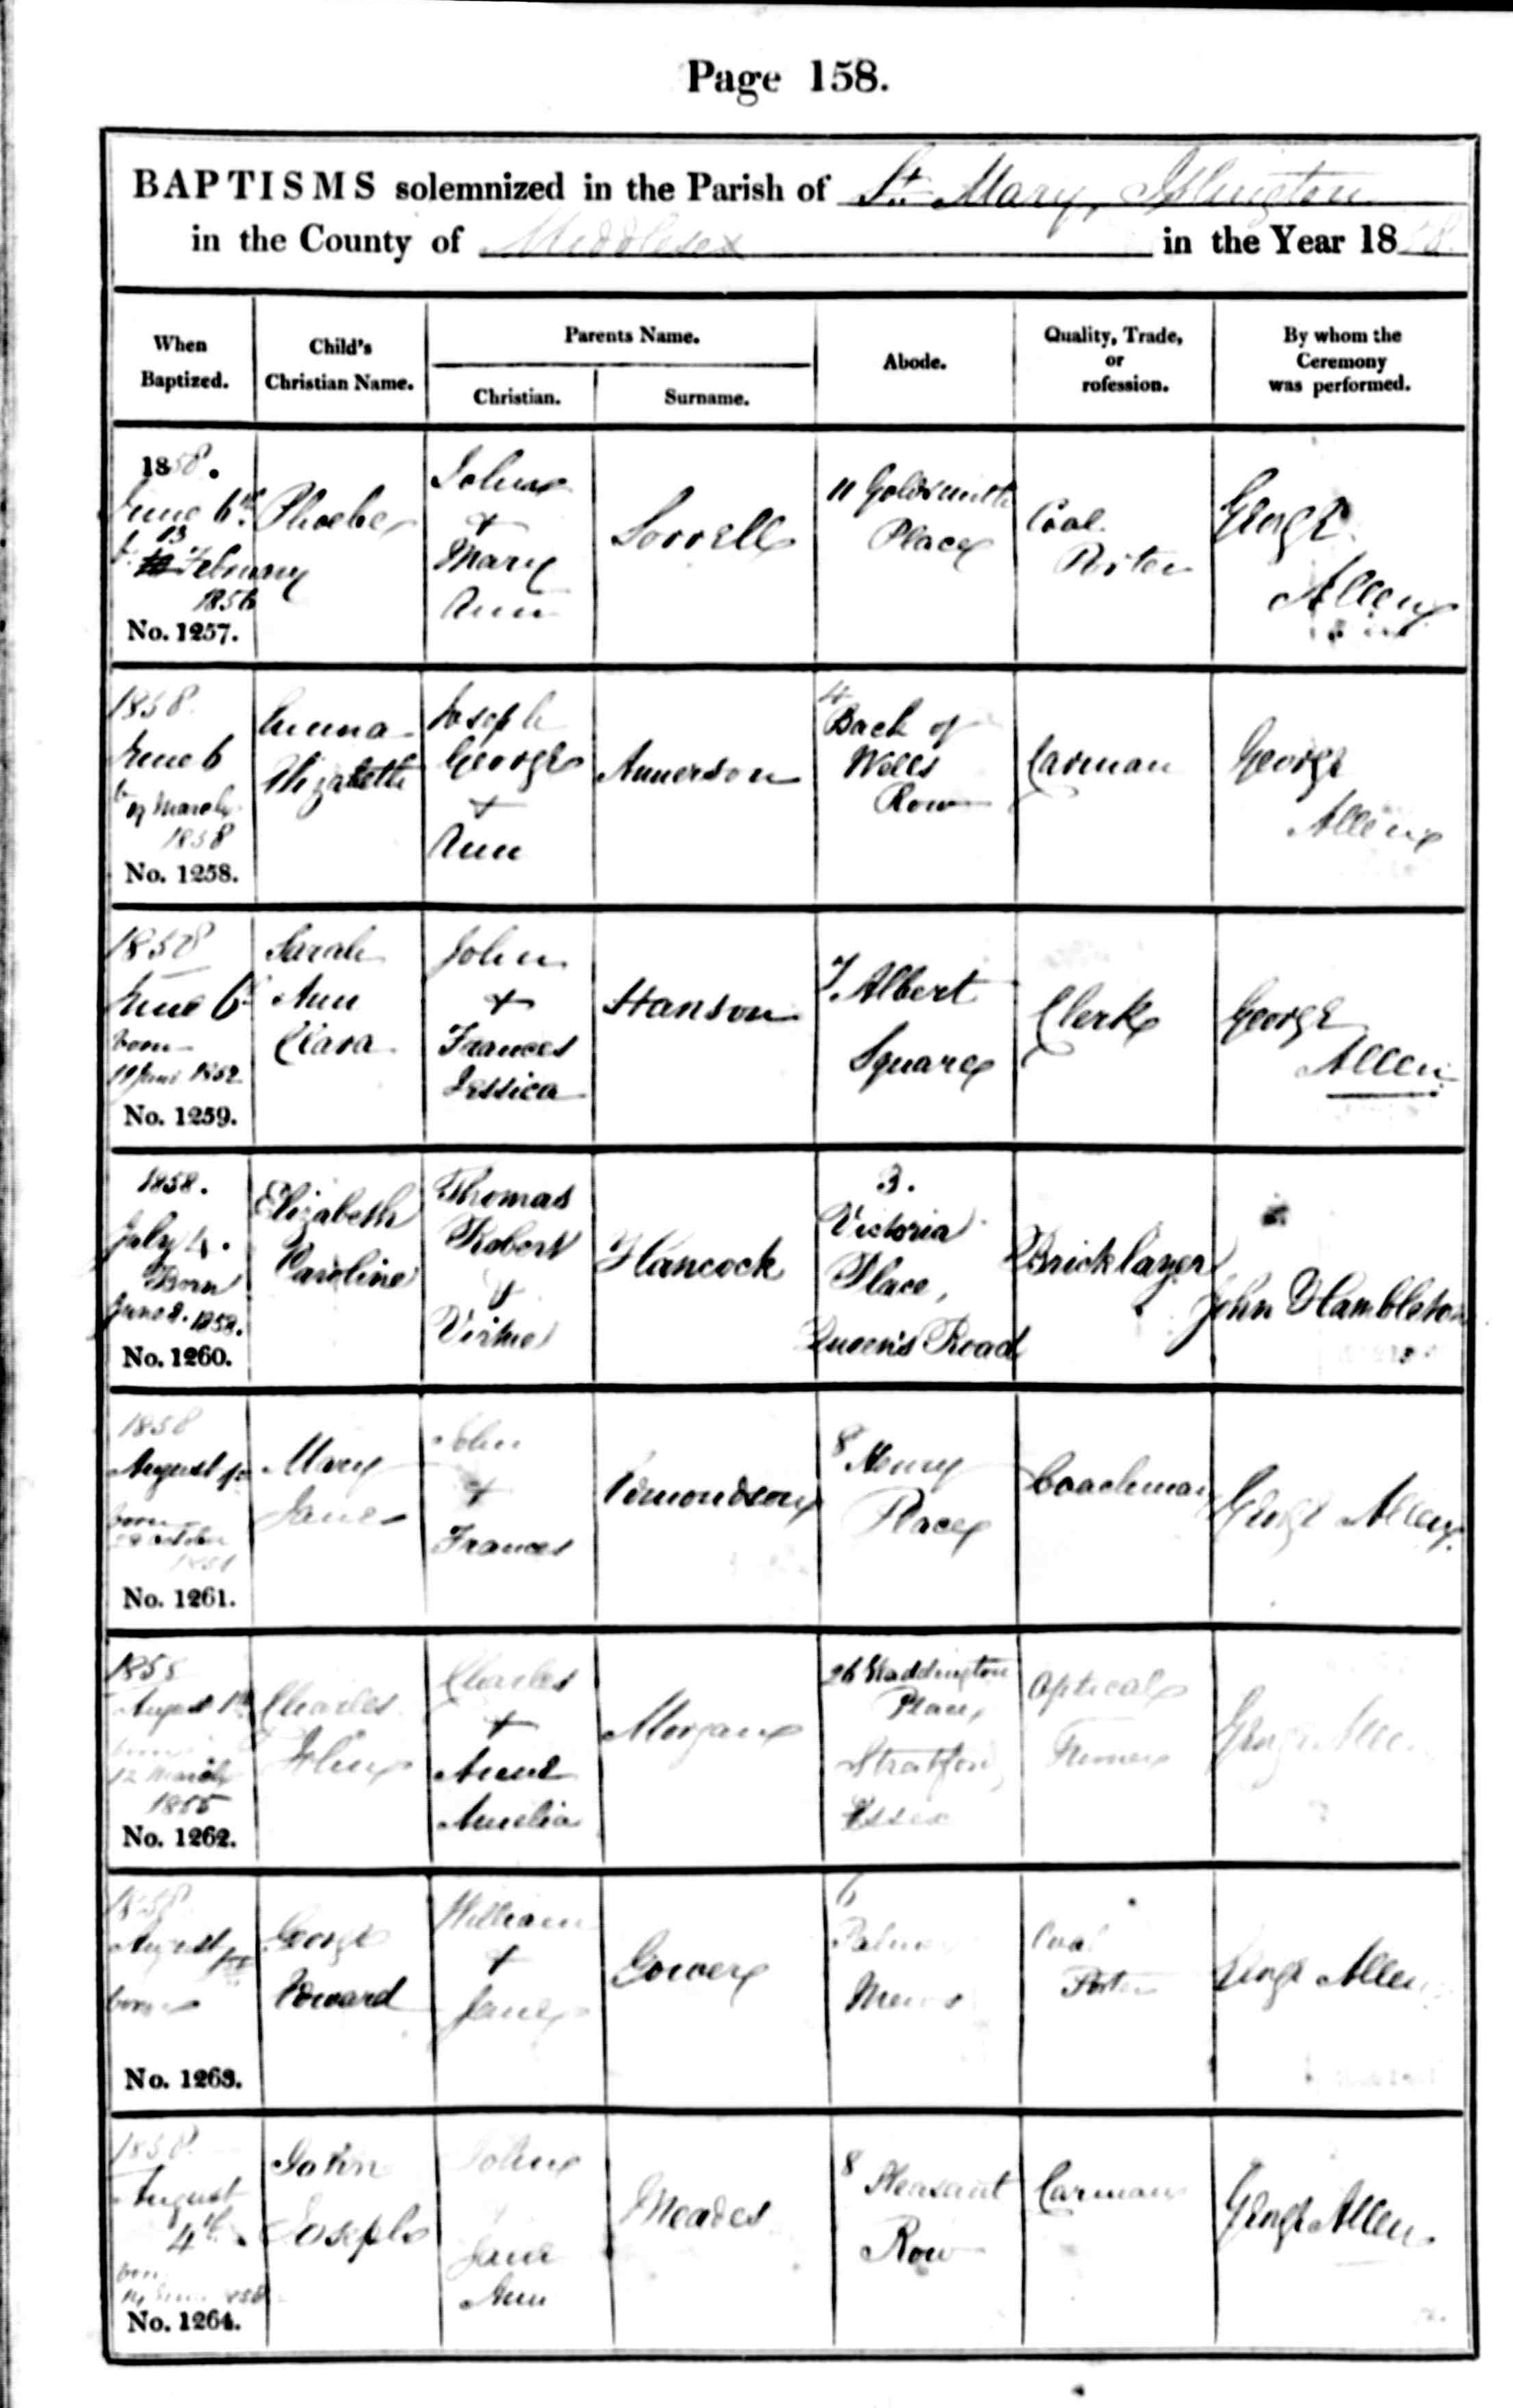 Page 158.
BAPTISMS solemnized in the Parish of St. Mary, Islington
in the County of Middlesex in the Year 1858.
When Baptized.
Child's Christian Name.
Parents Name.
Christian.
Surname.
Abode.
Quality, Trade, or rofession.
By whom the Ceremony was performed.
1858.
June 6th
13
February
1856
No. 1257.
Phoebe
John
+
Mary
Ann
Sorrell
11 Goldsmith
Place
Coal
Porter
George
Allen
1858.
June 6
March
1858
No. 1258.
Emma
Elizabeth
Joseph
George
+
Ann
Annerson
4
Back of
Wells
Row
Carman
George
Allen
1858
June 6
born
19 June 1852
No. 1259.
Sarah
Ann
Clara
John
+
Frances
Jessica
Hanson
7. Albert
Square
Clerk
George
Allen
1858.
July 4.
Born
June 8. 1858.
No. 1260.
Elizabeth
Caroline
Thomas
Robert
+
Virtue
Hancock
3.
Victoria
Place,
Queen's Road
Bricklayer
John Hambleton
1858
August
born
October
No. 1261.
Mary
Jane
John
+
Frances
Edmondson
8 Henry
Place
Coachman
George Allen
1858
August 1st
born
12 March
1855
No. 1262.
Charles
John
Charles
+
Anne
Amelia
Morgan
26 Waddington
Place
Stratford
Essex
Optical
Turner
George Allen
1858
August
born
No. 1263.
George
Edward
William
+
Jane
Gower
6
Palmer
Mews
Coal
Porter
George Allen
1858.
August
4th
born
No. 1264.
John
Joseph
John
Jane
Ann
Meades
8 Pleasant
Row
Carman
George Allen